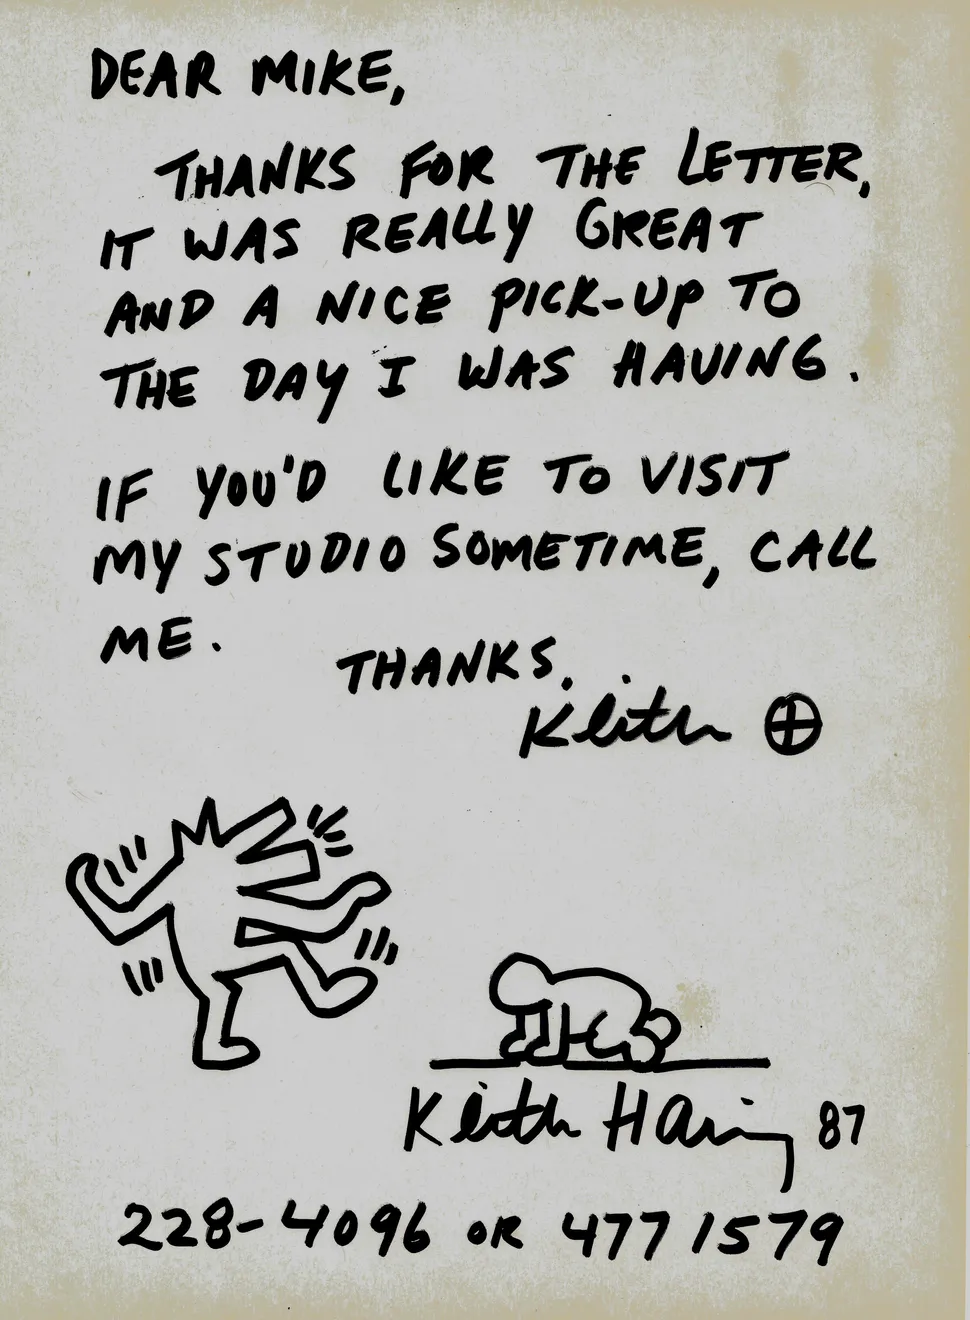 DEAR MIKE,
THANKS FOR THE LETTER,
IT WAS REALLY GREAT
AND A NICE PICK-UP TO
THE DAY I WAS HAVING.
IF YOU'D LIKE TO VISIT
MY STUDIO SOMETIME, CALL
ME.
THANKS,
Keith
Keith Haring 87
228-4096 OR 477 1579